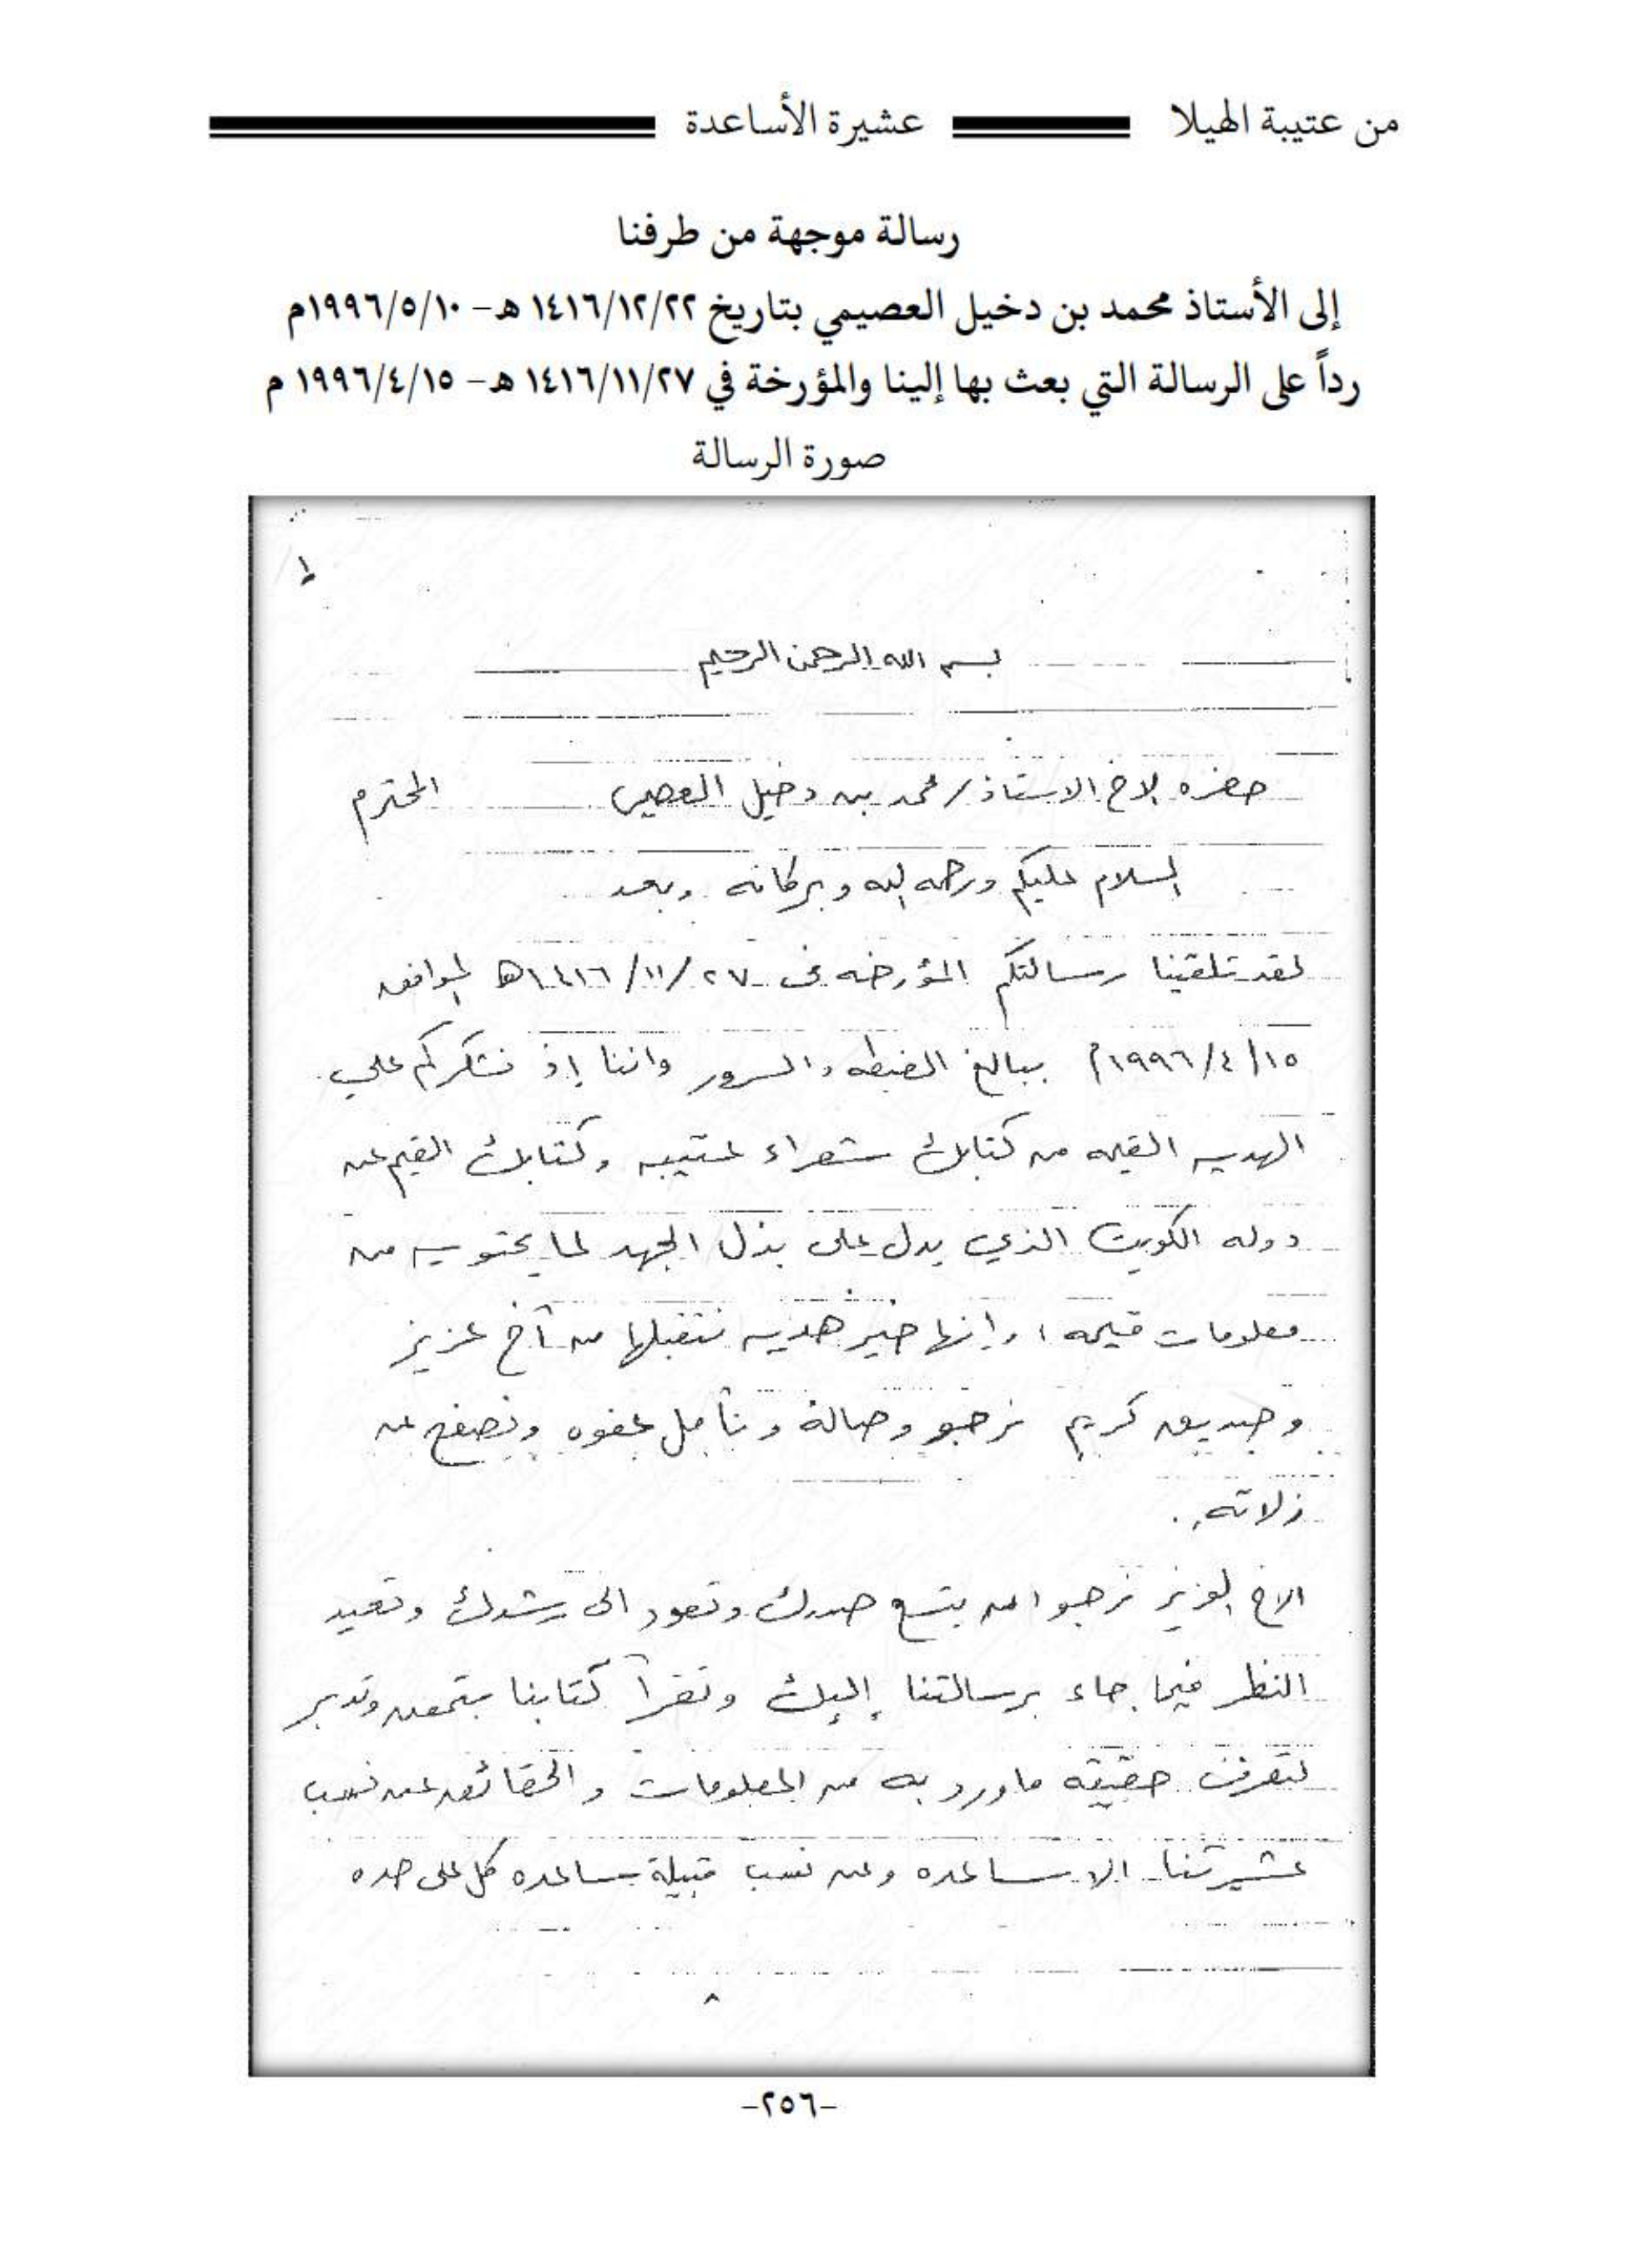 من عتيبة الهيلا عشيرة الأساعدة
رسالة موجهة من طرفنا
إلى الأستاذ محمد بن دخيل العصيمي بتاريخ ١٤١٦/١٢/٢٢ هـ- ١٩٩٦/٥/١٠م
رداً على الرسالة التي بعث بها إلينا والمؤرخة في ١٤١٦/١١/٢٧ هـ- ١٩٩٦/٤/١٥ م
صورة الرسالة
بسم الله الرحمن الرحيم
حضره الاخ الاستاذ / محمد بن دخيل العصيمي المحترم
السلام عليكم ورحمه الله وبركاته وبعد
لقد تلقينا رسالتكم المؤرخه في ٢٧/١١/١٤١٦هـ الموافق
١٥/٤/١٩٩٦م ببالغ الغبطه والسرور واننا إذ نشكركم علي
الهديه القيمه من كتابك شعراء عتيبه وكتابك القيم عن
دوله الكويت الذي يدل على بذل الجهد لما يحتويه من
معلومات قيمه ، وإنها خير هديه نتقبلها من أخ عزيز
وصديق كريم نرجو وصالة ونأمل عفوه ونصفح عن
زلاته .
الاخ العزيز نرجوا ان يتسع صدرك وتعود الى رشدك وتعيد
النظر فيما جاء برسالتنا إليك وتقرأ كتابنا بتمعن وتدبر
لتعرف حقيقه ماورد به من المعلومات والحقائق عن نسب
عشيرتنا الاساعده وعن نسب قبيلة مساعده كل على حده
-٢٥٦-